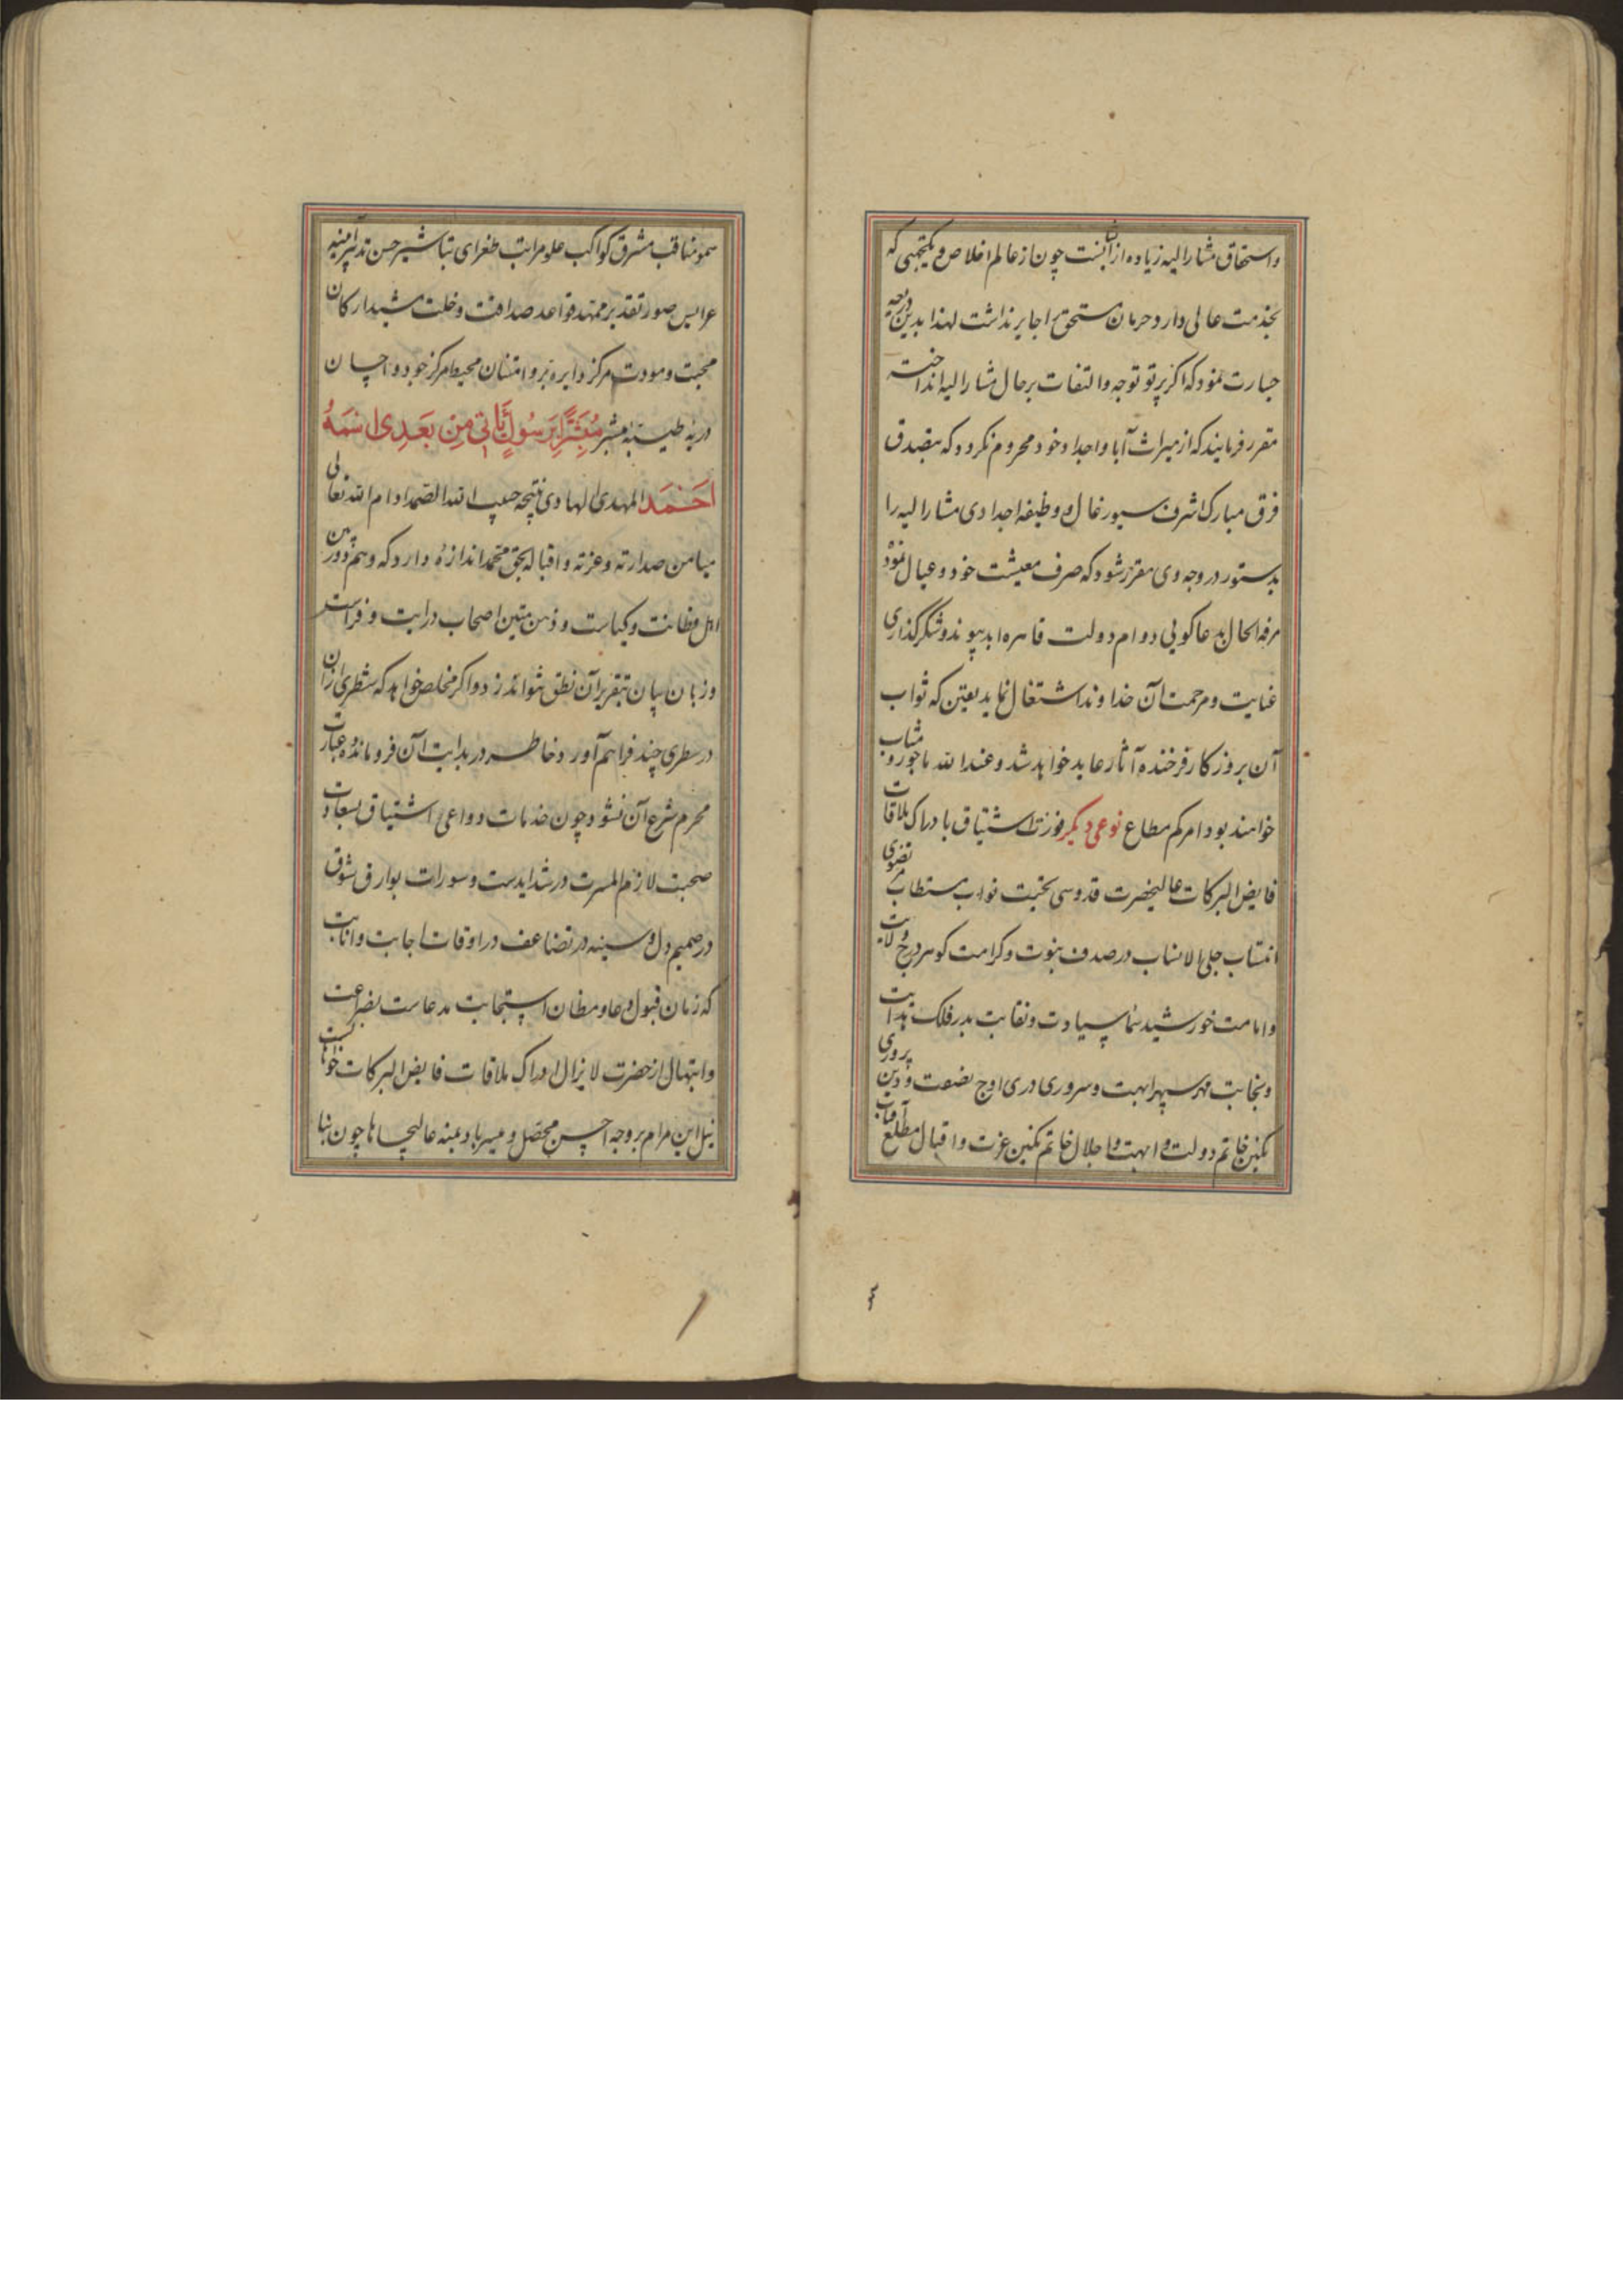 واستحقاق مشار الیه زیاده از آنست چون از عالم اخلاص و یکجهتی که
بخدمت عالی دارد حرمان مستحق را جایز نداشت لهذا بدین ذریعه
جسارت نمود که اگر پرتو توجه و التفات بر حال مشار الیه انداخته
مقرر فرمایند که از میراث آبا و اجداد خود محروم نگردد که بتصدق
فرق مبارک اشرف سیورغال و وظیفه اجدادی مشار الیه را
بدستور در وجه وی مقرر شود که صرف معیشت خود و عیال نموده
مرفه الحال بدعاگویی دوام دولت قاهره ابد پیوند و شکرگذاری
عنایت و مرحمت آن خداوند اشتغال نماید یقین که ثواب
آن بروزگار فرخنده آثار عاید خواهد شد و عند الله ماجور و مثاب
خواهند بود امرکم مطاع نوعی دیگر اشتیاق بادراک ملاقات
فایض البرکات عالیحضرت قدوسی نواب مستطاب
انتساب جلی الانساب در صدف نبوت و کرامت گوهر درج ولایت
و امامت خورشید سماء سیادت و نقابت بدر فلک هدایت
و نجابت مهر سپهر ابهت و سروری دری اوج نصفت و دین پروری
نگین خاتم دولت و ابهت و اجلال خاتم نگین عزت و اقبال مطلع آفتاب
سمو مناقب مشرق کواکب علو مراتب طغرای تباشیر حسن تدبیر
عرایس صور تقدیر ممهد قواعد صداقت و خلت مشید ارکان
محبت و مودت مرکز دایره بر و امتنان محیط مرکز جود و احسان
مبشر مُبَشِّرًا بِرَسُولٍ يَأْتِي مِنْ بَعْدِي اسْمُهُ
أَحْمَد المهدی الهادی نتیجه حبیب الله الصمد ادام الله تعالی
میامن صدارته و عزته و اقباله بحق محمد اندازه دارد که وهم دوربین
اهل فطانت و کیاست و ذهن متین اصحاب درایت و فراست
و زبان بیان بتقریر آن نطق تواند زد و اگر مخلص خواهد که شطری از آن
در سطری چند فراهم آورد خاطر در بدایت آن فرومانده عبارت
محرم شرح آن نشود چون خدمات دواعی اشتیاق بسعادت
صحبت لازم المسرت در شدایدست و سورات بوارق شوق
در صمیم دل و سینه در تضاعف در اوقات اجابت و انابت
که زمان قبول دعا و مظان استجابت مدعاست بضراعت
و ابتهال از حضرت لایزال ادراک ملاقات فایض البرکات خواهانست
نیل این مرام بر وجه احسن محصل و میسر باد بمنه عالیجاها چون بنا